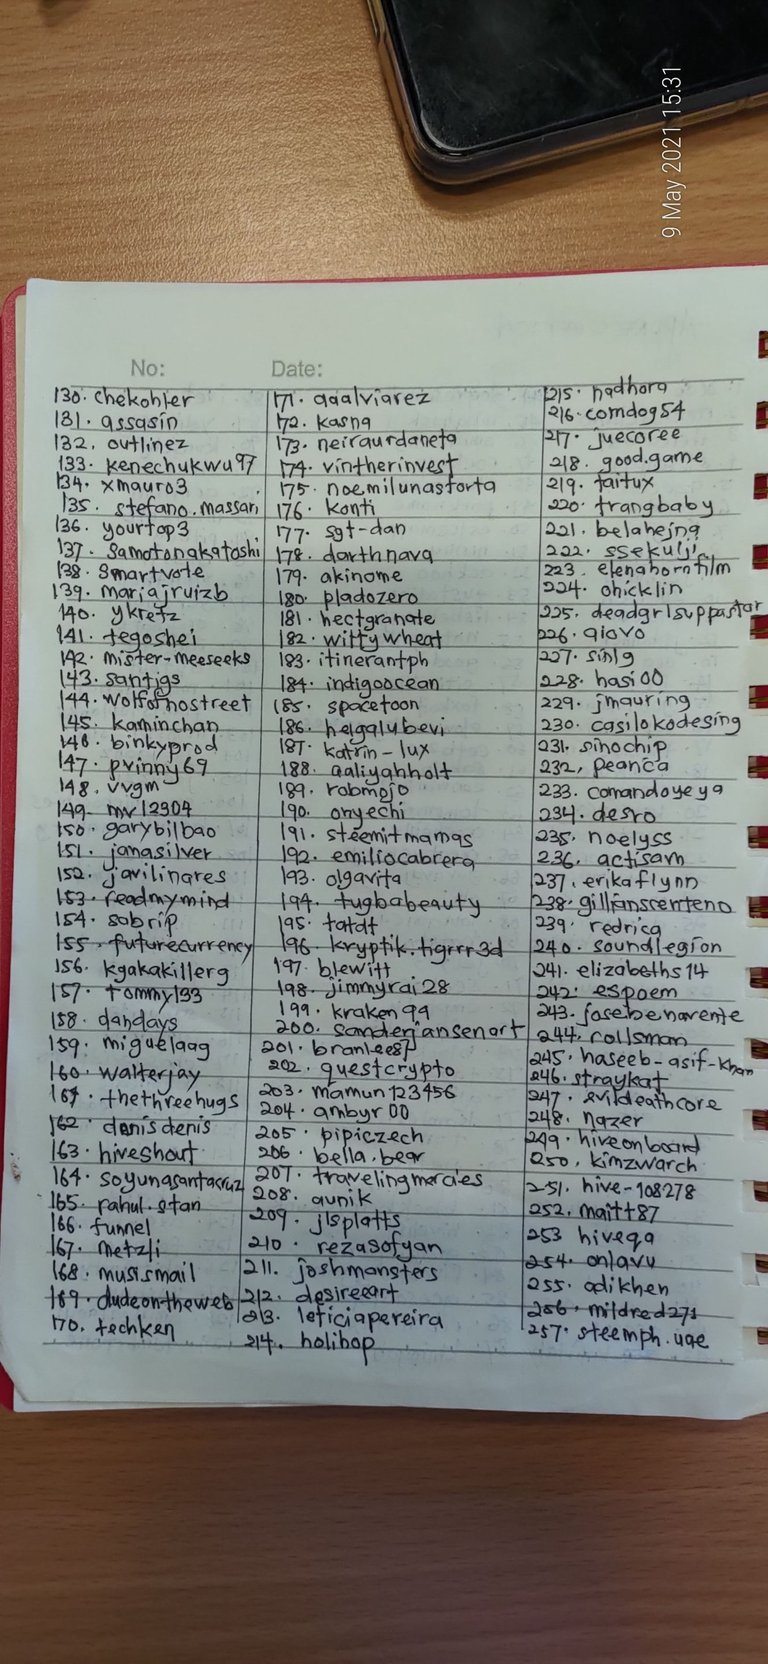 9 May 2021 15:31
No:
Date:
130. chekohler
131. assasin
132. outlinez
133. kenechukwu97
134. xmauro3
135. stefano.massari
136. yourtop3
137. samotonakatoshi
138. smartvote
139. mariajruizb
140. ykretz
141. tegoshei
142. mister-meeseeks
143. santigs
144. wolfofnostreet
145. kaminchan
146. binkyprod
147. prinny69
148. vvgm
149. mv12904
150. garybilbao
151. janasilver
152. javilinares
153. readmymind
154. sabrip
155. futurecurrency
156. kgakakillerg
157. tommy133
158. dandays
159. miguelaag
160. walterjay
161. thethreehugs
162. denisdenis
163. hiveshout
164. soyunasantacruz
165. rahul.stan
166. funnel
167. metzli
168. musismail
169. dudeontheweb
170. techken
171. aaalviarez
172. kasna
173. neiraurdaneta
174. vintherinvest
175. noemilunastorta
176. konti
177. sgt-dan
178. darthnava
179. akinome
180. pladozero
181. hectgranate
182. wittywheat
183. itinerantph
184. indigoocean
185. spacetoon
186. helgalubevi
187. katrin-lux
188. aaliyahholt
189. robmojo
190. onyechi
191. steemitmamas
192. emiliocabrera
193. olgavita
194. tugbabeauty
195. tatdt
196. kryptik.tigrrr3d
197. blewitt
198. jimmyrai28
199. kraken99
200. sanderjansenart
201. branlee87
202. questcrypto
203. mamun123456
204. ambyr00
205. pipiczech
206. bella.bear
207. travelingmercies
208. aunik
209. jlsplatts
210. rezasofyan
211. joshmansters
212. desireeart
213. leticiapereira
214. holihop
215. nadhora
216. comdog54
217. juecoree
218. good.game
219. taitux
220. trangbaby
221. belahejna
222. ssekulji.
223. elenahornfilm
224. ohicklin
225. deadgrlsuppastar
226. aiovo
227. sinlg
228. hasi00
229. jmauring
230. casilokodesing
231. sinochip
232. peanca
233. comandoyeya
234. desro
235. noelyss
236. actisam
237. erikaflynn
238. gillianscenteno
239. redrica
240. soundlegion
241. elizabeths14
242. espoem
243. josebenavente
244. rollsman
245. haseeb-asif-khan
246. straykat
247. evildeathcore
248. nazer
249. hiveonboard
250. kimzwarch
251. hive-108278
252. maitt87
253 hiveqa
254. onlavu
255. adikhen
256. mildred271
257. steemph.uae